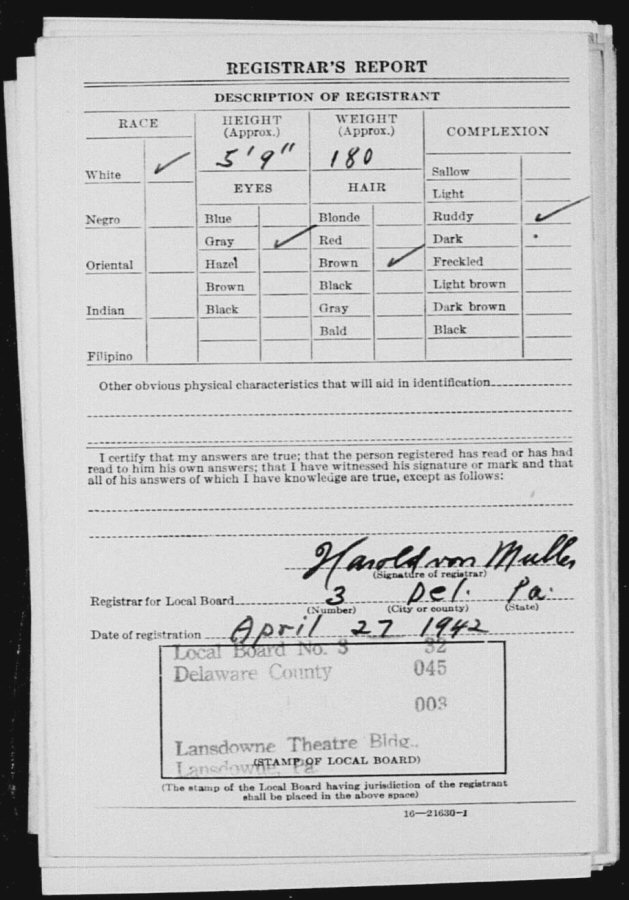 REGISTRAR'S REPORT
DESCRIPTION OF REGISTRANT
RACE
HEIGHT
(Approx.)
WEIGHT
(Approx.)
COMPLEXION
5' 9"
180
White ✓
Sallow
EYES
HAIR
Light
Negro
Blue
Blonde
Ruddy ✓
Gray ✓
Red
Dark
Oriental
Hazel
Brown ✓
Freckled
Brown
Black
Light brown
Indian
Black
Gray
Dark brown
Bald
Black
Filipino
Other obvious physical characteristics that will aid in identification
I certify that my answers are true; that the person registered has read or has had
read to him his own answers; that I have witnessed his signature or mark and that
all of his answers of which I have knowledge are true, except as follows:
Harold von Muller
(Signature of registrar)
Registrar for Local Board 3 Del. Pa.
(Number) (City or county) (State)
Date of registration April 27 1942
Local Board No. 3 32
Delaware County 045
003
Lansdowne Theatre Bldg.,
(STAMP OF LOCAL BOARD)
Lansdowne, Pa.
(The stamp of the Local Board having jurisdiction of the registrant
shall be placed in the above space)
16—21630-1